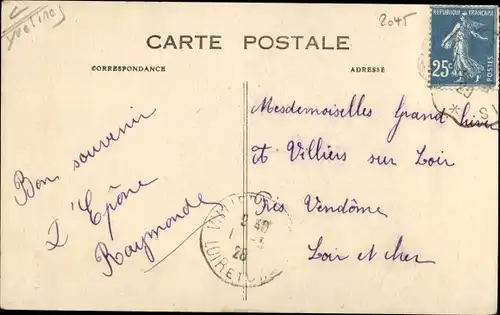 Yvelines
2045
CARTE POSTALE
CORRESPONDANCE
ADRESSE
REPUBLIQUE FRANÇAISE
25c
POSTES
Bon souvenir
d'Epône
Raymonde
Mesdemoiselles Grand'hive
A Villiers sur Loir
Près Vendôme
Loir et cher